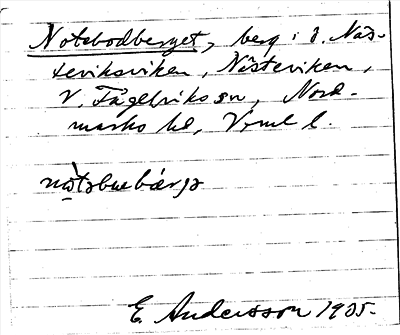 Notebodberget, berg i d. Näs-
teviksviken, Nästeviken,
V. Fågelviks sn, Nord-
marks hd, Vrml l.
nò̤təbwbærjə
E. Andersson 1935.